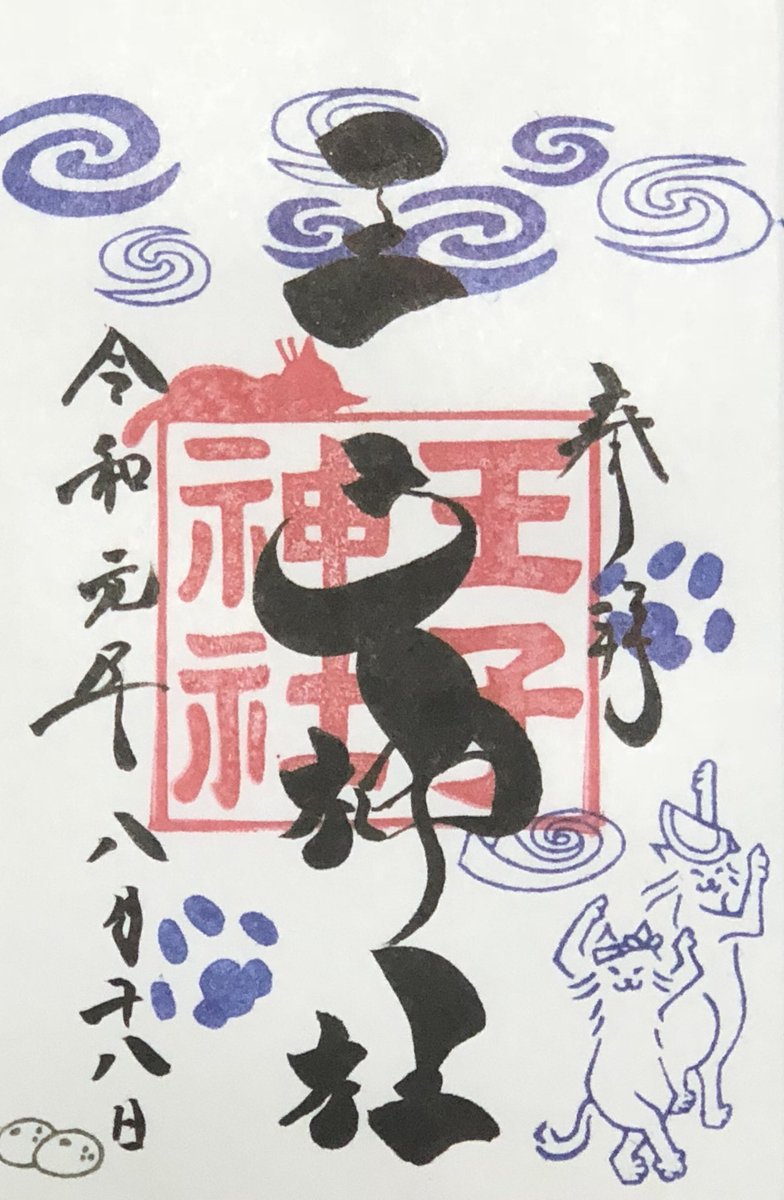 奉拝
王子神社
王子
神社
令和元年八月十八日